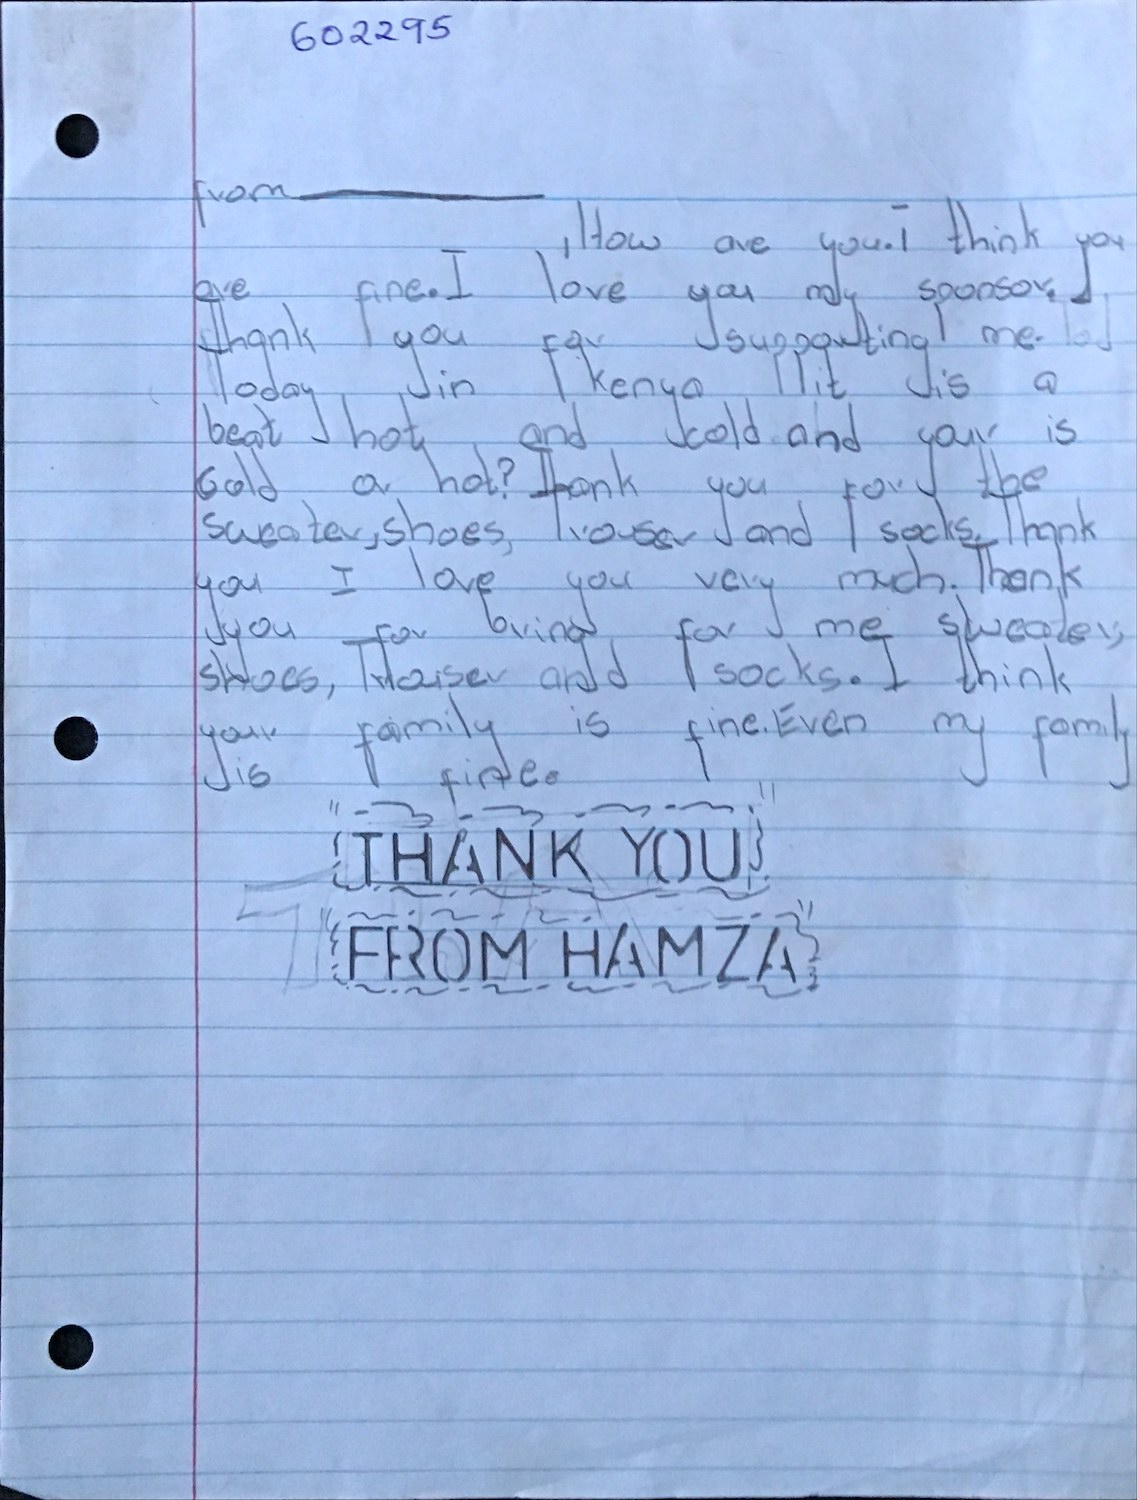 602295
from
How are you. I think you
are fine. I love you my sponsor. I
thank you for supporting me.
Today in kenya it is a
beat hot and cold and your is
Cold or hot? Thank you for the
sweater, shoes, Trouser and socks. Thank
you I love you very much. Thank
you for bring for me sweater,
shoes, Trouser and socks. I think
your family is fine. Even my family
is fine.
THANK YOU
FROM HAMZA